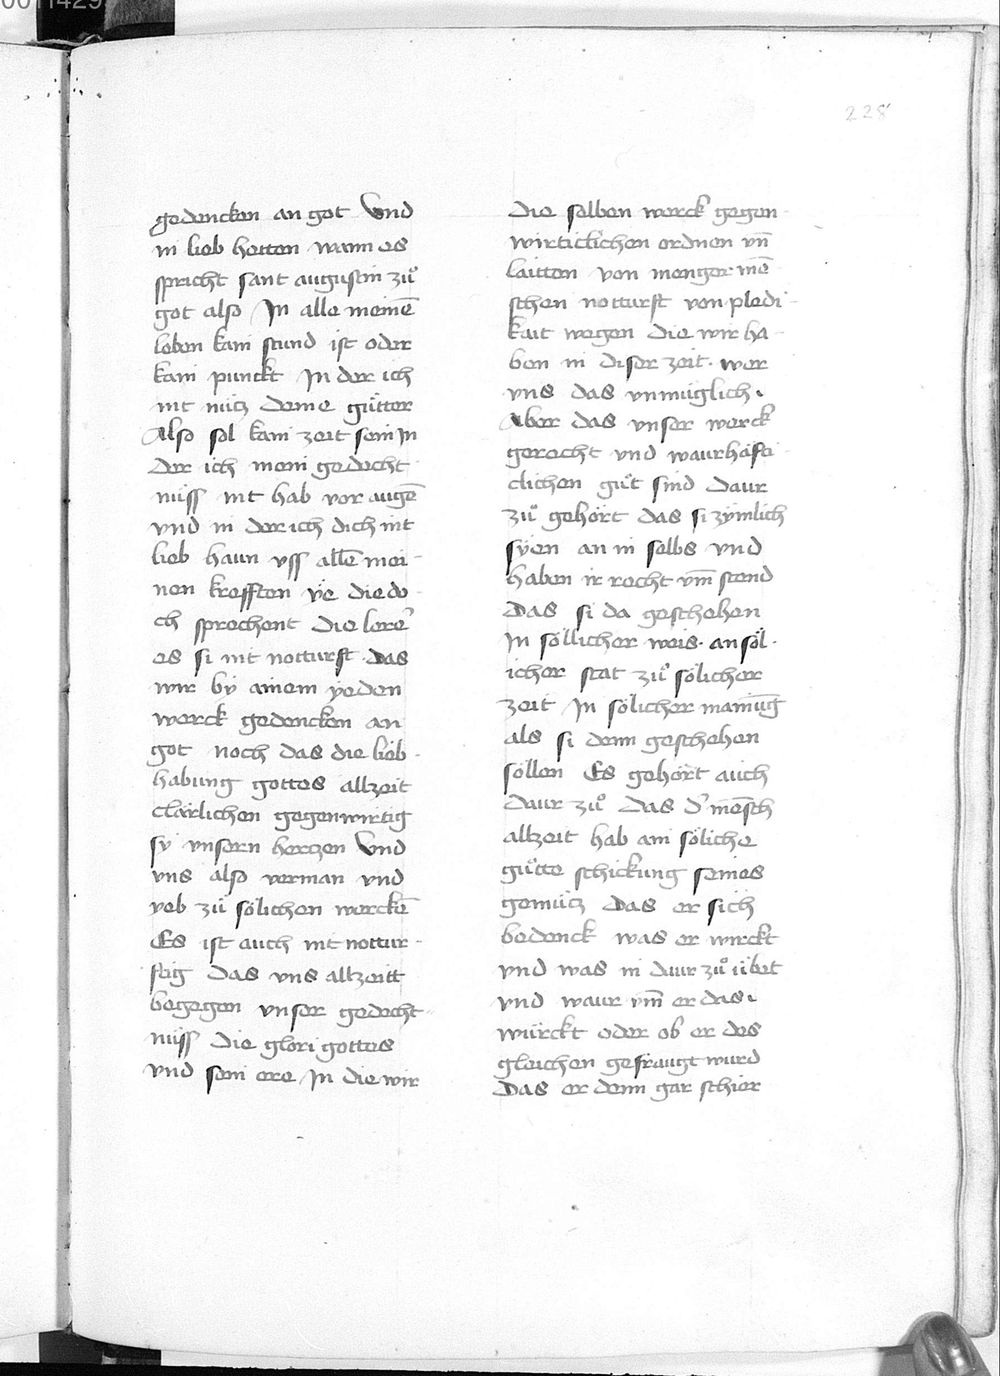 228
gedencken an got Vnd
in lieb hetten wann es
spricht sant augustin zuͦ
got also In alle meinē
leben kain stund ist oder
kain punckt In der ich
nit nücz deine guͤtter
Also sol kain zeit sein In
der ich mein gedecht
nüss nit hab vor augē
vnd in der ich dich nit
lieb haun vss allē mei-
nen krefften ye die do
ch sprechent die lerer
es si nit notturft das
wir by ainem yeden
werck gedencken an
got noch das die lieb-
habung gottes allzeit
clärlichen gegenwirtig
sy vnsern hertzen Vnd
vns also verman vnd
yeb zü sölichen werckē
Es ist auch nit nottur-
ftig das vns allzeitt
begegen vnser gedecht-
nüss die glori gottes
vnd sein ere In die wir
die selben werck gegen-
wirticklichen ordnen vn̄
laitten von menger mē
schen notturft von pledi-
kait wegen die wir ha-
ben in diser zeit. wer
vns das vnmüglich.
Aber das vnser werck
gerecht vnd waurhäfti
clichen guͤt sind daur
zuͦ gehört das si zymlich
syen an in selbs vnd
haben ir recht vm̄ stend
Das si da geschehen
In söllicher weis. an söl-
icher stat zuͦ sölicher
zeit In sölicher mainūg
als si denn geschehen
söllen Es gehört auch
daur zuͦ das d' mēsch
allzeit hab ain söliche
guͤtte schickung seines
gemücz Das er sich
bedenck was er wirckt
vnd was in daur zuͦ übet
vnd waur vm̄ er das
würckt oder ob er des
gleichen gefraugt wurd
Das er denn gar schier